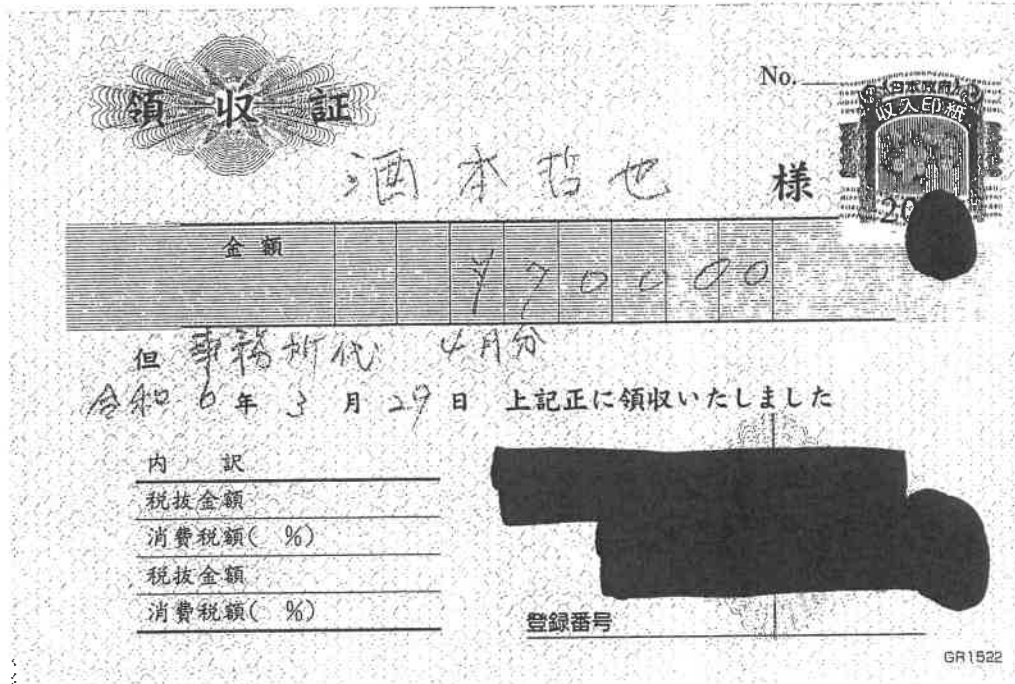 領収証
No.
日本政府
収入印紙
20
酒本哲也 様
金額 ¥70000
但 事務所代 4月分
令和 6 年 3 月 29 日 上記正に領収いたしました
内 訳
税抜金額
消費税額( %)
税抜金額
消費税額( %)
登録番号
GR1522